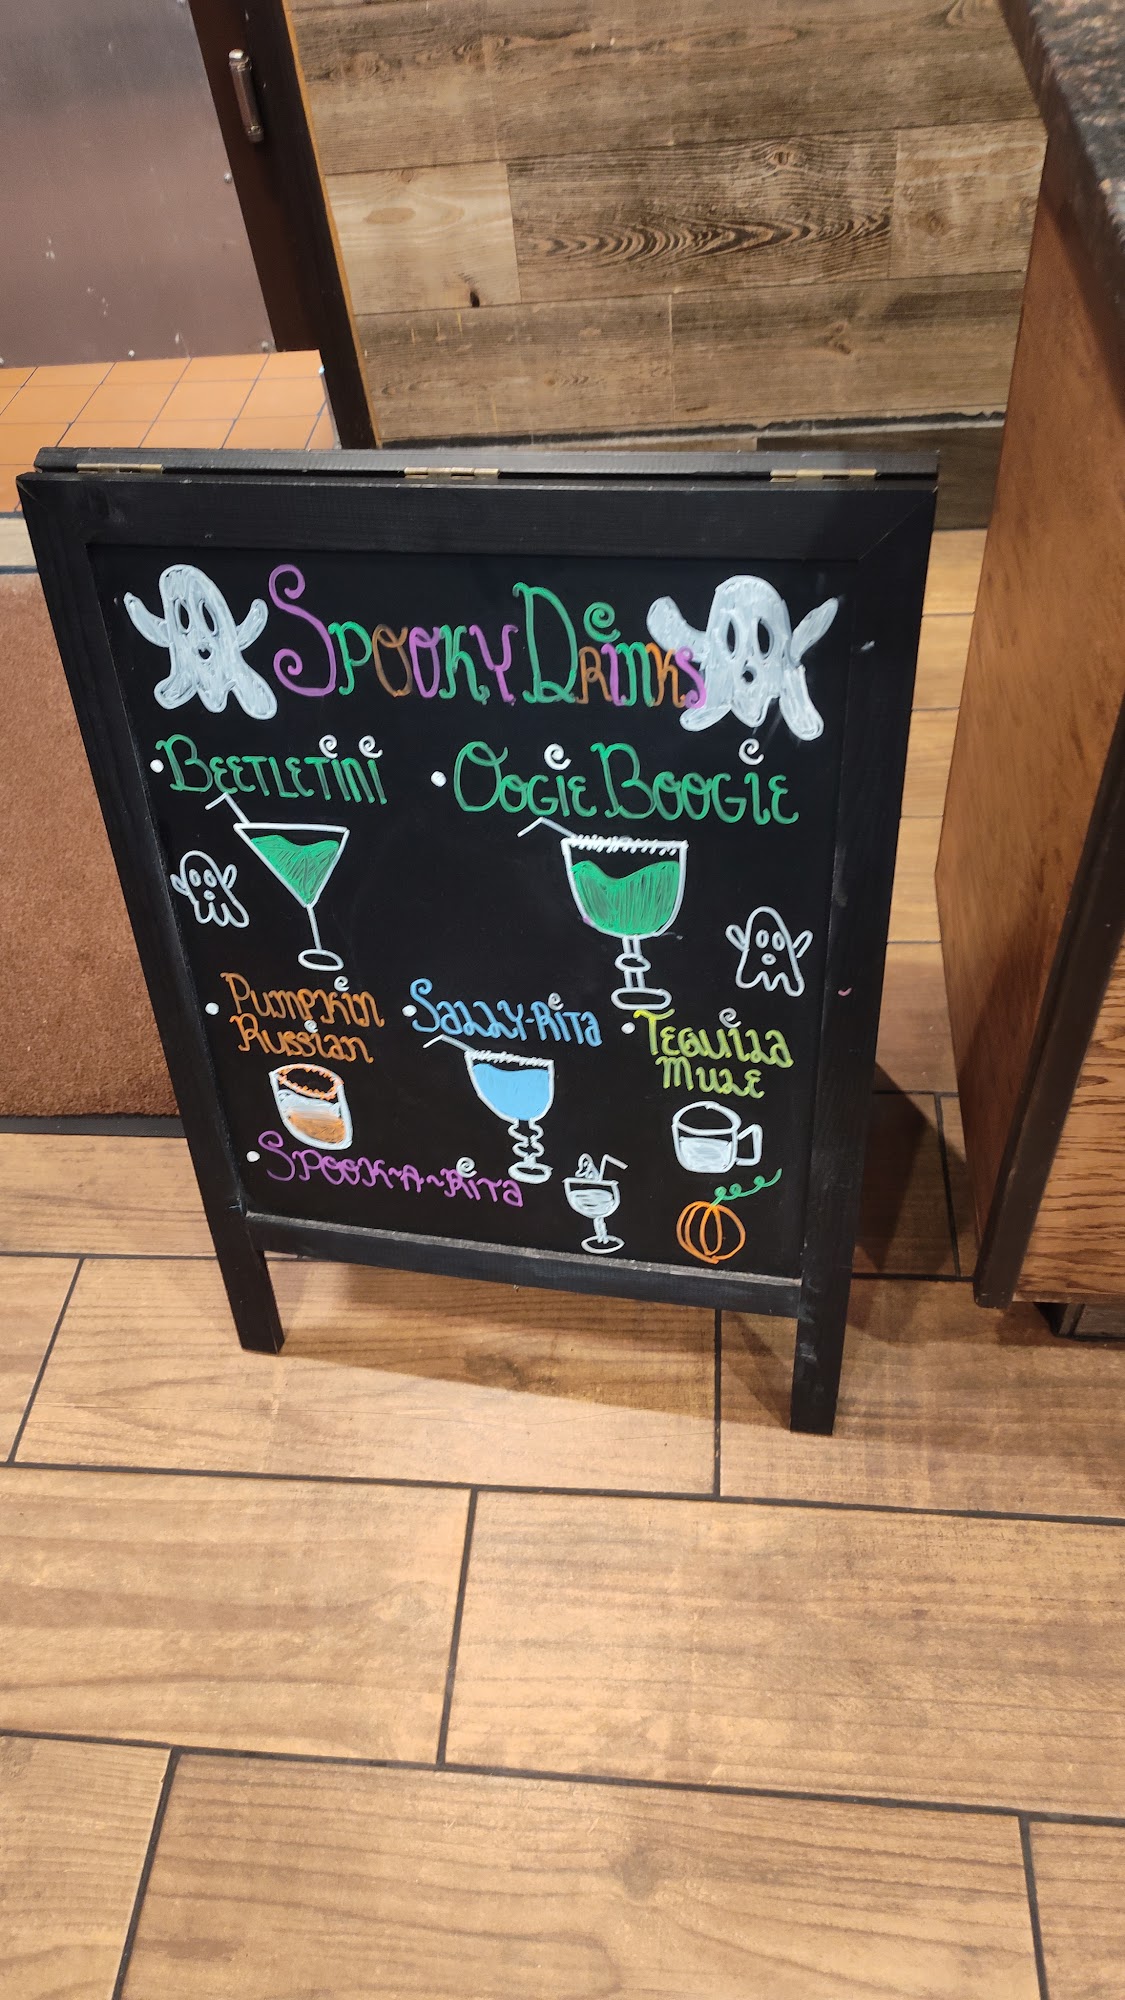 Spooky Drinks
• Beetletini
• Oogie Boogie
• Pumpkin
Russian
• Sally-Rita
• Tequila
Mule
• Spook~A~Rita